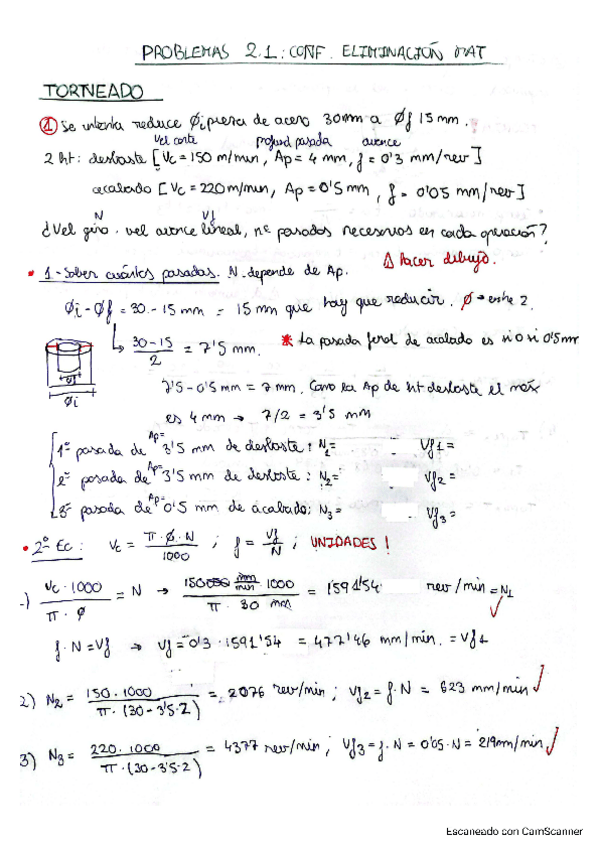 PROBLEMAS 2.1: CONF. ELIMINACIÓN MAT
TORNEADO
① Se intenta reduce Øi pieza de acero 30mm a Øf 15mm.
vel corte profund pasada avance
2 ht: desbaste [Vc = 150 m/min, Ap = 4 mm, f = 0'3 mm/rev]
acabado [Vc = 220 m/min, Ap = 0'5 mm, f = 0'05 mm/rev]
N Vf
¿Vel giro, vel avance lineal, nº pasadas necesarios en cada operación?
⚠ Hacer dibujo.
• 1.- Saber cuántas pasadas. N. depende de Ap.
Øi - Øf = 30 - 15 mm = 15 mm que hay que reducir. Ø → entre 2.
↳ 30-15 / 2 = 7'5 mm. * La pasada final de acabado es sí o sí 0'5mm
Øf
Øi
7'5 - 0'5 mm = 7 mm. Como la Ap de ht desbaste el máx
es 4 mm → 7/2 = 3'5 mm
1º pasada de Ap= 3'5 mm de desbaste: N1= Vf1 =
2º pasada de Ap= 3'5 mm de desbaste: N2= Vf2 =
3º pasada de Ap= 0'5 mm de acabado: N3= Vf3 =
• 2º Ec: Vc = π·Ø·N / 1000 ; f = Vf / N ; UNIDADES!
-) Vc · 1000 / π · Ø = N → 150000 mm/min 1000 / π · 30 mm = 1591'54 rev/min = N1 ✓
f · N = Vf → Vf = 0'3 · 1591'54 = 477'46 mm/min. = Vf1
2) N2 = 150 · 1000 / π · (30 - 3'5 · 2) = 2076 rev/min ; Vf2 = f · N = 623 mm/min ✓
3) N3 = 220 · 1000 / π · (30 - 3'5 · 2) = 4377 rev/min, Vf3 = f · N = 0'05 · N = 219mm/min ✓
Escaneado con CamScanner